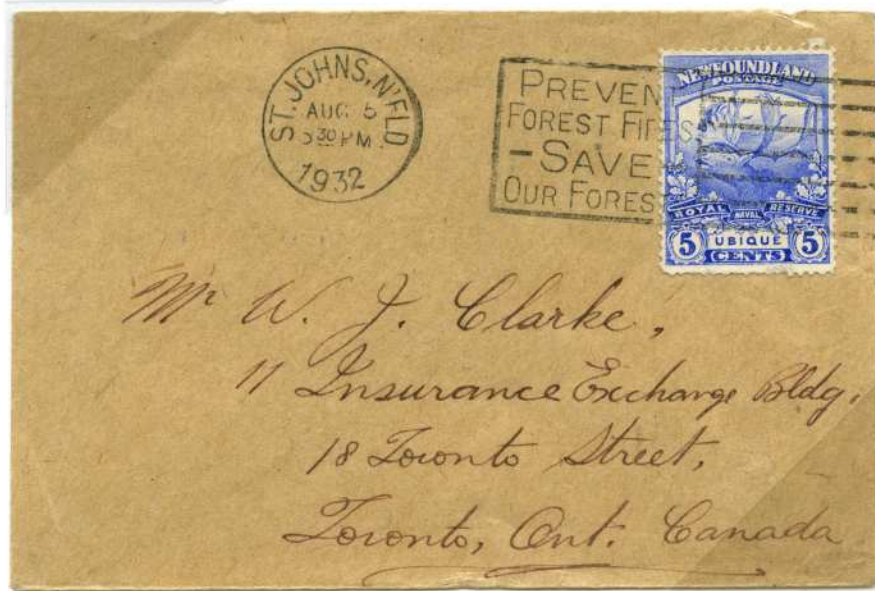 ST. JOHNS, N'FLD
AUG 5
5 30 PM
1932
PREVEN
FOREST FIRES
-SAVE
OUR FORES
NEWFOUNDLAND
POSTAGE
ROYAL NAVAL RESERVE
5 UBIQUE 5
CENTS
Mr W. J. Clarke,
11 Insurance Exchange Bldg.
18 Toronto Street,
Toronto, Ont. Canada